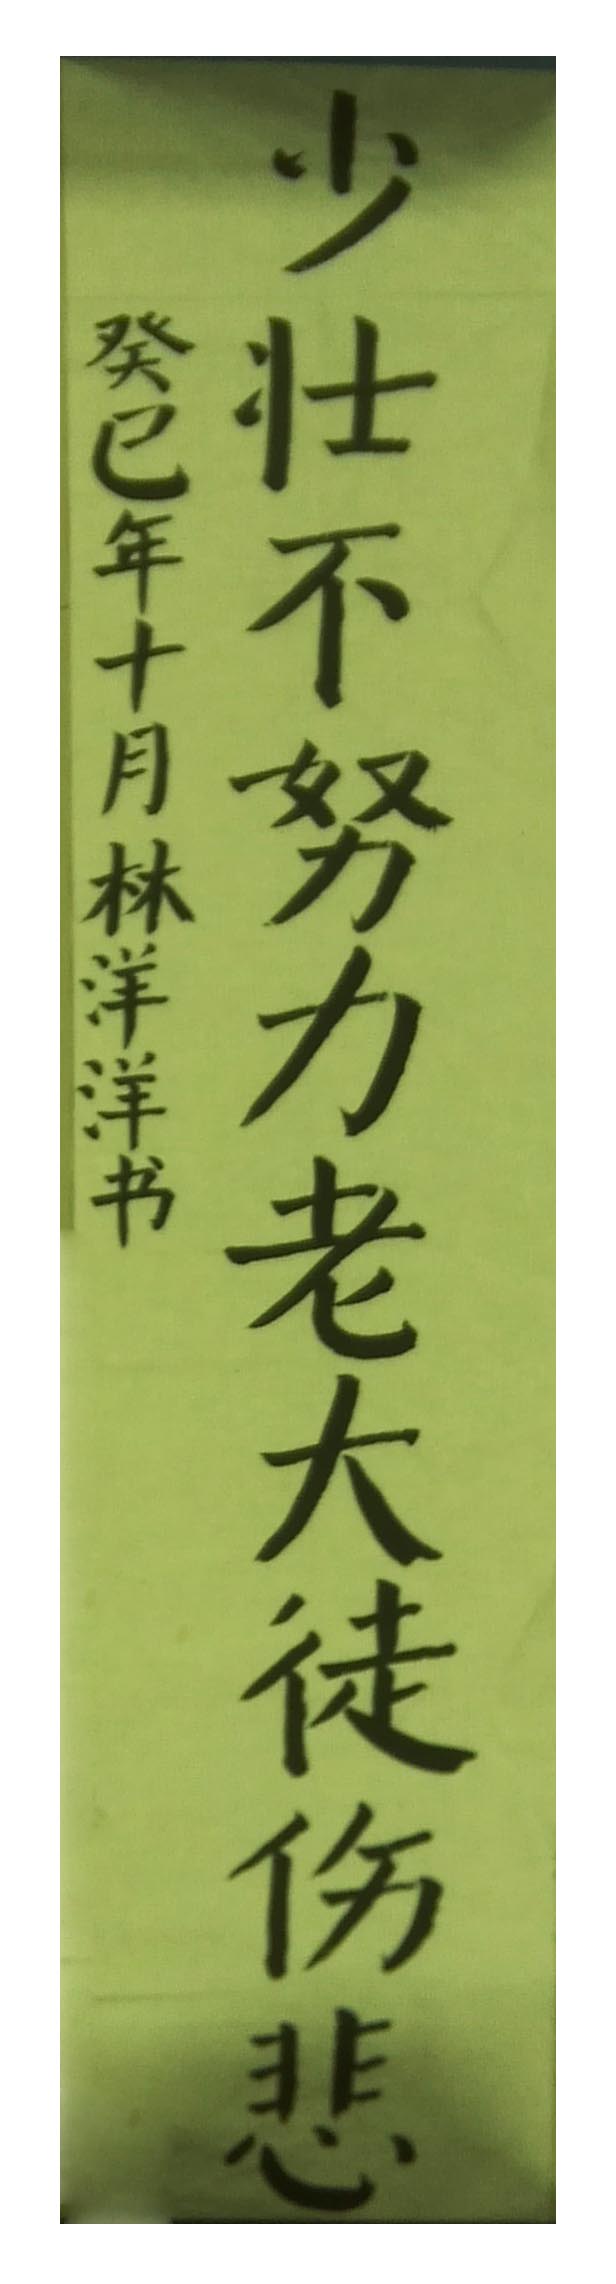 少壮不努力老大徒伤悲
癸巳年十月林洋洋书